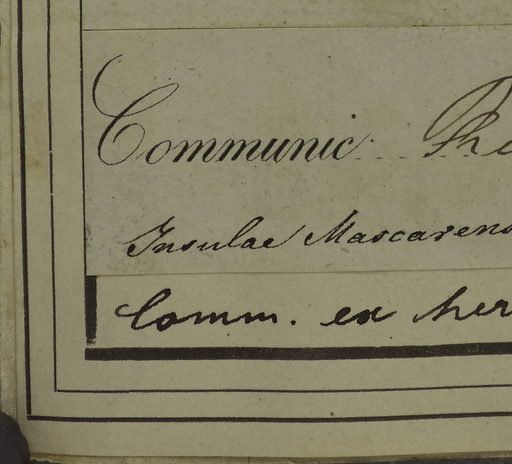 Communic. Phe
Insulae Mascarens
Comm. ex her